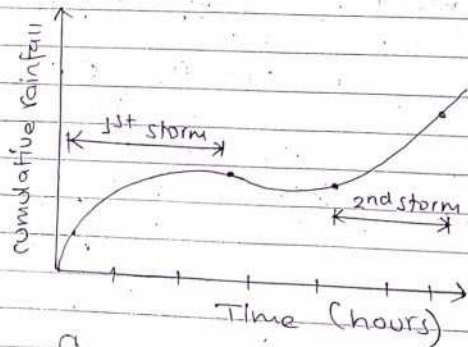 cumulative rainfall
1st storm
2nd storm
Time (hours)